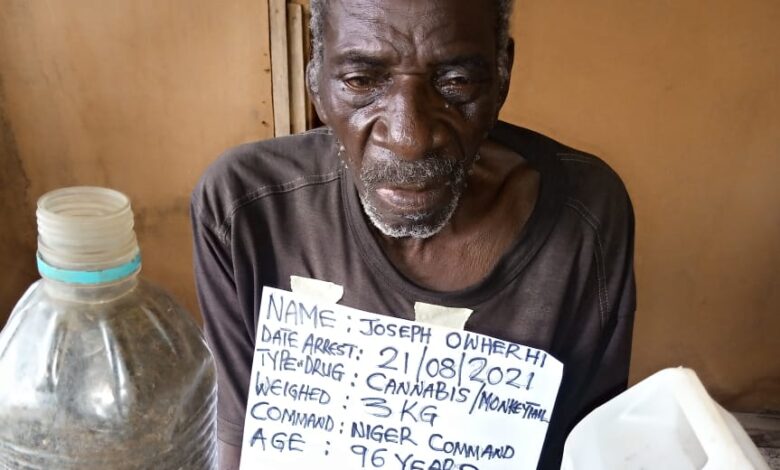 NAME : JOSEPH OWHERHI
DATE ARREST: 21/08/2021
TYPE DRUG : CANNABIS/MONKEYTAIL
WEIGHED : 3 KG
COMMAND: NIGER COMMAND
AGE : 96 YEARS